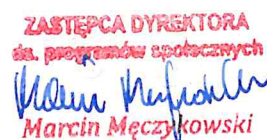 ZASTĘPCA DYREKTORA
ds. programów społecznych
Marcin Męczykowski